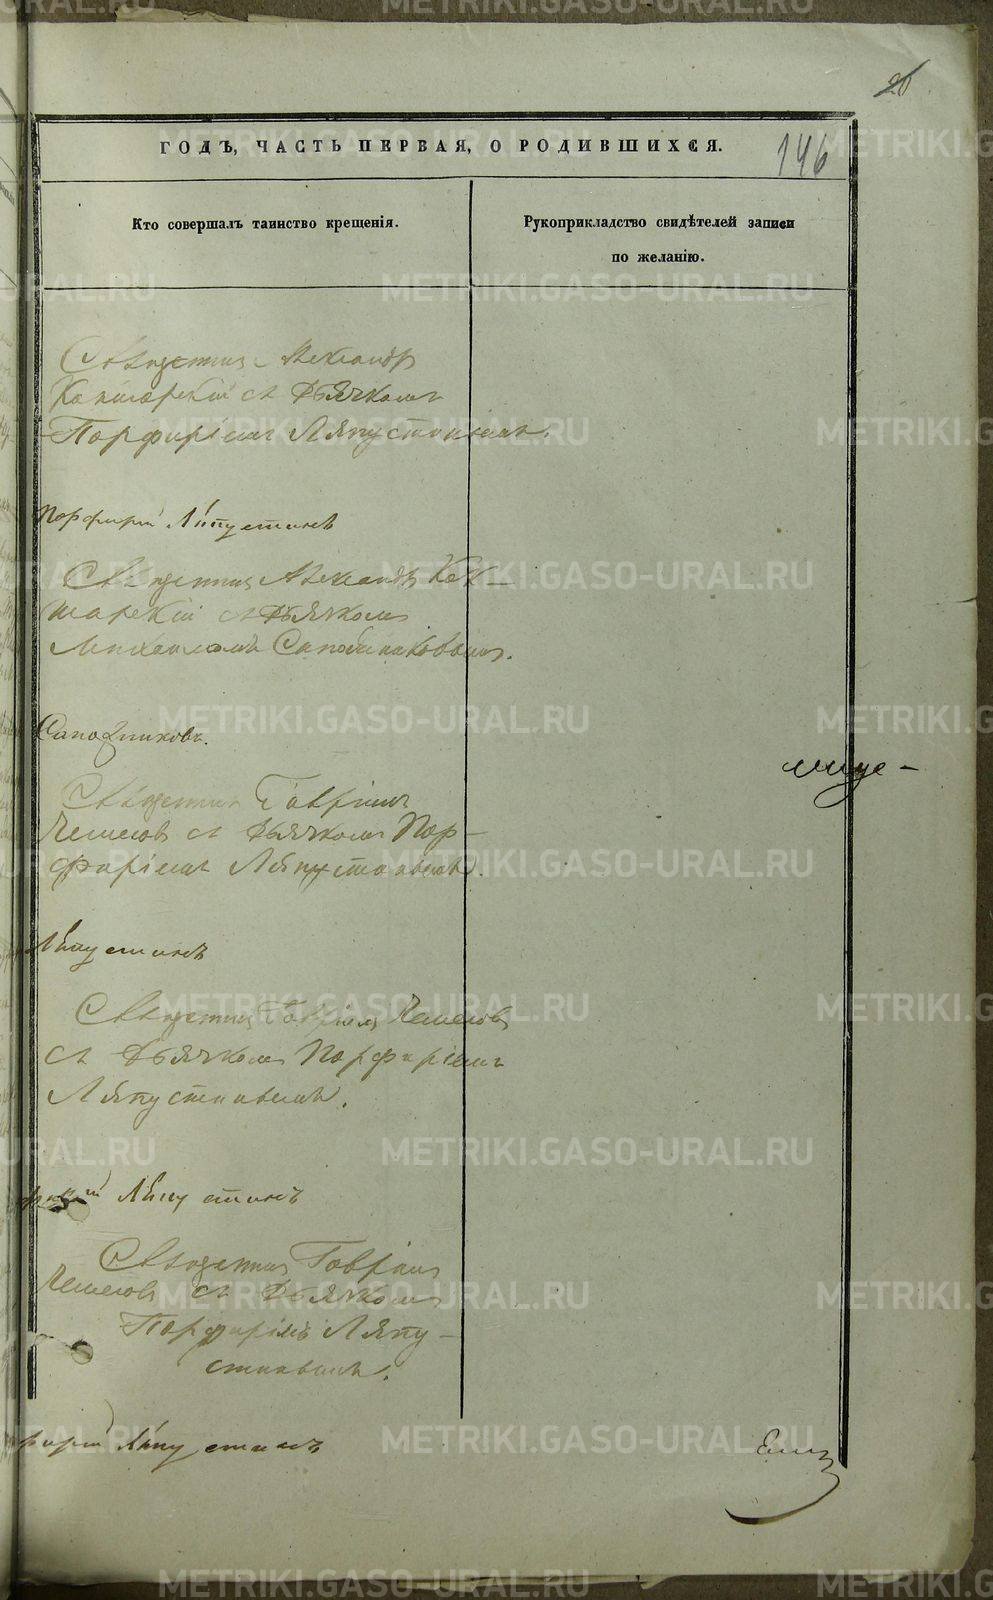 20
ГОДЪ, ЧАСТЬ ПЕРВАЯ, О РОДИВШИХСЯ.
146
Кто совершалъ таинство крещенія.
Рукоприкладство свидѣтелей записи
по желанію.
Священникъ Александръ
Кон
съ Дьячкомъ
Порфиріемъ Ляпустинымъ.
Порфирій Ляпустинъ
Священникъ Александръ Кон-
шарскій съ Дьячкомъ
Михаиломъ Сапожниковымъ.
Сапожниковъ.
Священникъ Гавріилъ
съ Дьячкомъ Пор-
фиріемъ Ляпустинымъ.
Ляпустинъ
Священникъ Гавріилъ
съ Дьячкомъ Порфиріемъ
Ляпустинымъ.
фирій Ляпустинъ
Священникъ Гавріилъ
съ Дьячкомъ
Порфиріемъ Ляпу-
стинымъ.
фирій Ляпустинъ
METRIKI.GASO-URAL.RU